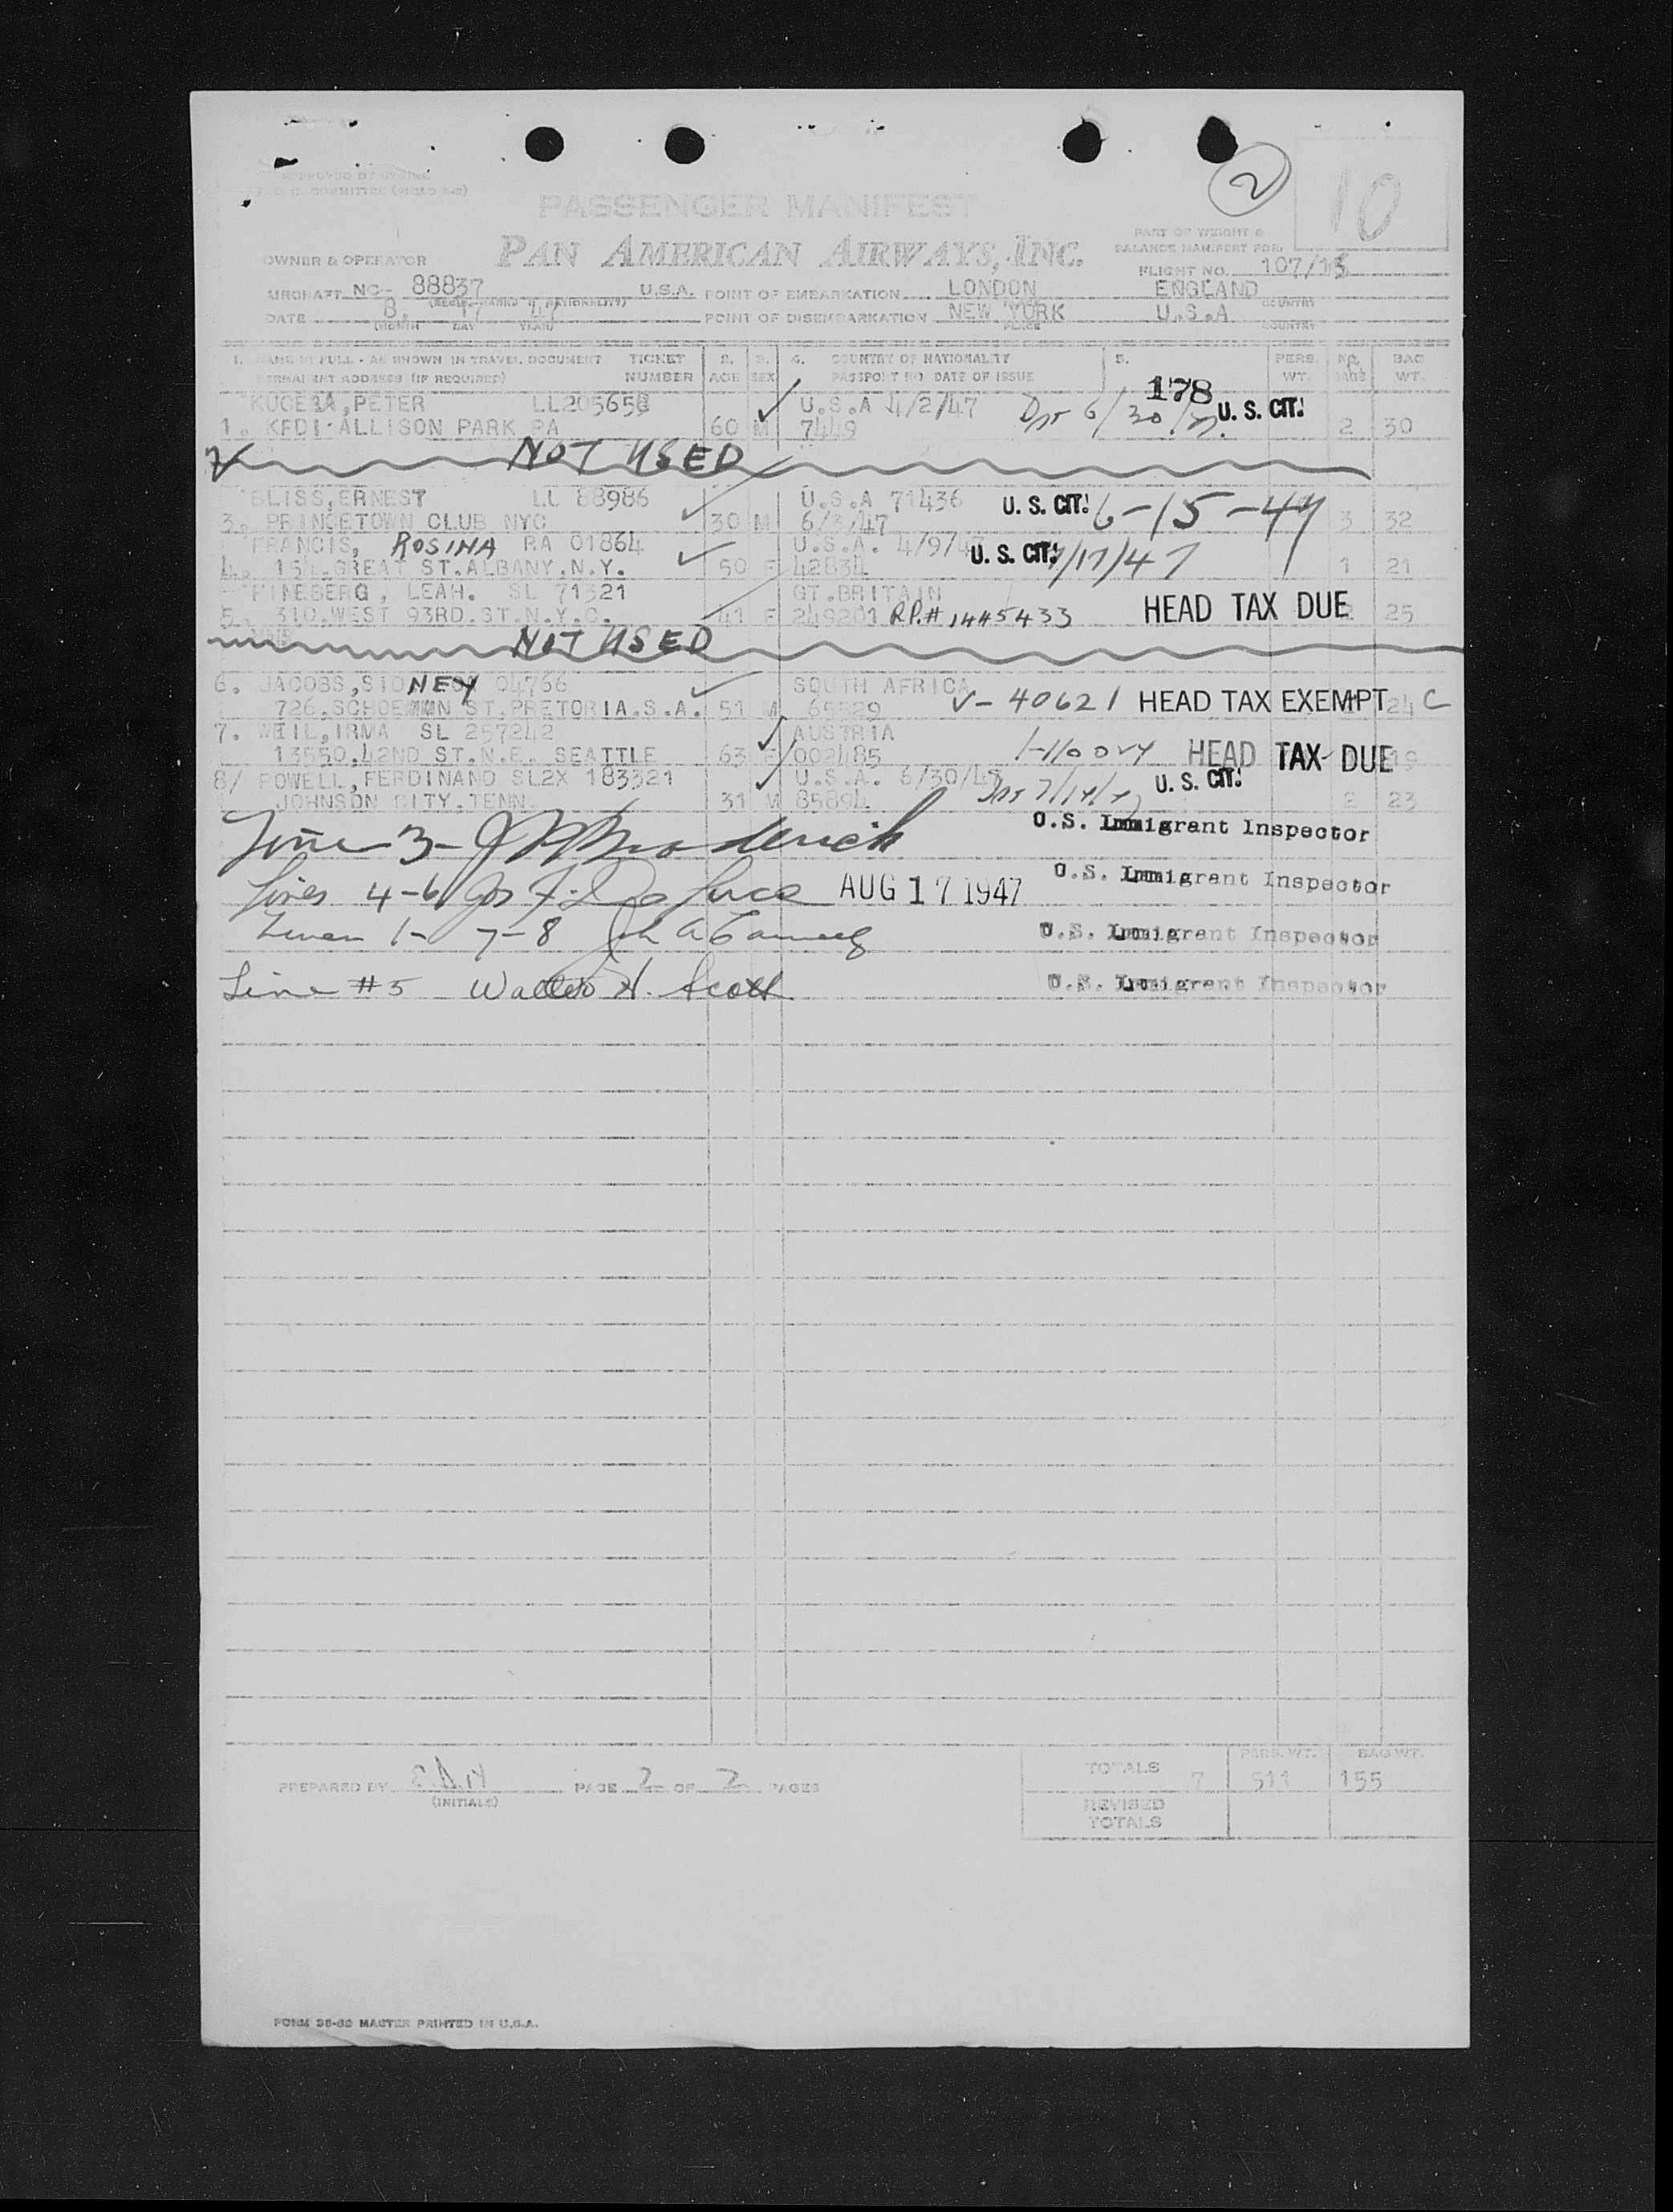 APPROVED BY
COMMITTEE
2
10
PASSENGER MANIFEST
PAN AMERICAN AIRWAYS, INC.
PART OF WEIGHT &
BALANCE MANIFEST FOR:
OWNER & OPERATOR
FLIGHT NO. 107/
AIRCRAFT NC- 88837 U.S.A. POINT OF EMBARKATION LONDON ENGLAND
COUNTRY
DATE 8. 17 47 POINT OF DISEMBARKATION NEW YORK U.S.A
(MONTH DAY YEAR) PLACE COUNTRY
1. NAME IN FULL - AS SHOWN IN TRAVEL DOCUMENT TICKET 2. 3. 4. COUNTRY OF NATIONALITY 5. PERS. NO. BAG
PERMANENT ADDRESS (IF REQUIRED) NUMBER AGE SEX PASSPORT NO DATE OF ISSUE WT. BAGS WT.
178
KUCERA, PETER U.S.A 4/2/47 6/30/ U. S. CIT.
1. ALLISON PARK PA 60 M 7449 2 30
NOT USED
BLISS, ERNEST LL 88986 U.S.A 71436 U. S. CIT. 6-15-47
3. PRINCETOWN CLUB NYC 30 M 6/3/47 3 32
FRANCIS, ROSINA RA 01864 U.S.A. 4/9/ U. S. CIT. /17/47
4. GREAT ST. ALBANY, N.Y. 50 F 42834 1 21
LEAH. SL 71321 GT. BRITAIN
5. 310, WEST 93RD. ST. N.Y.C. 41 F 249201 R.P.# 1445433 HEAD TAX DUE 25
NOT USED
6. JACOBS, SIDNEY 04766 SOUTH AFRICA
726, ST. PRETORIA. S.A. 51 M 65529 V-40621 HEAD TAX EXEMPT 24 C
7. WEIL, IRMA SL 257242 AUSTRIA
13550, 42ND ST. N.E. SEATTLE 63 F 002485 HEAD TAX DUE 19
8/ POWELL, FERDINAND SL2X 183321 U.S.A. 6/30/ U. S. CIT.
JOHNSON CITY. TENN. 31 M 85894 2 23
Line 3- Broderick U.S. Immigrant Inspector
Lines 4-6 AUG 17 1947 U.S. Immigrant Inspector
Lines 1- 7-8 U.S. Immigrant Inspector
Line #5 Walter H. Scott U.S. Immigrant Inspector
PERS. WT. BAG WT.
TOTALS 7 511 155
PREPARED BY PAGE 2 OF 2 PAGES
(INITIALS)
REVISED
TOTALS
FORM MASTER PRINTED IN U.S.A.